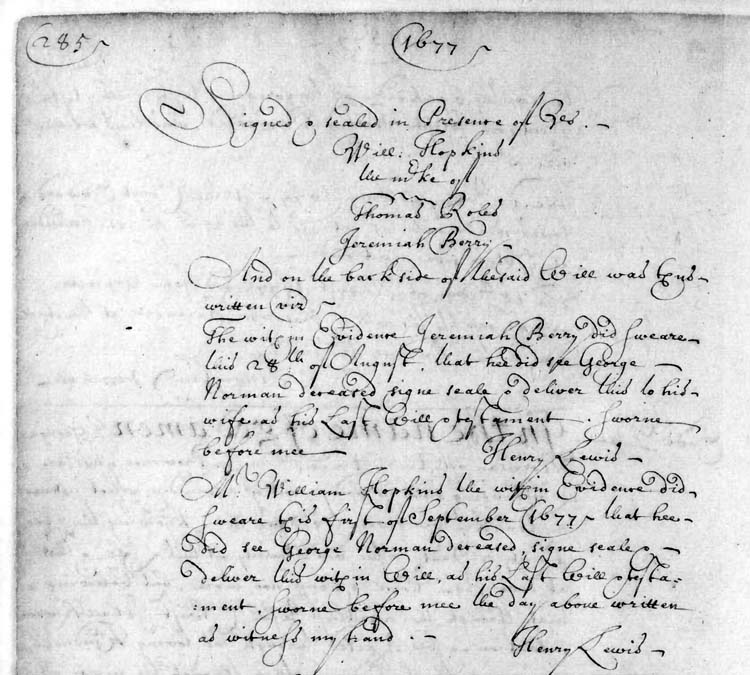 285
1677
Signed & sealed in Presence of Us. –
Will: Hopkins
the mrke of
Thomas Roles
Jeremiah Berry –
And on the back side of the said Will was thus –
written vizt
The within Evidence Jeremiah Berry did sweare –
this 28th of August, that hee did see George –
Norman deceased signe seale & deliver this to his –
wife as his Last Will & testament. sworne
before mee Henry Lewis –
Mr William Hopkins the within Evidence did –
sweare this first of September (1677) that hee –
did see George Norman deceased, signe seale & –
deliver this within Will, as his Last Will & testa=
=ment. sworne before mee the day above written
as witness my hand. – Henry Lewis –